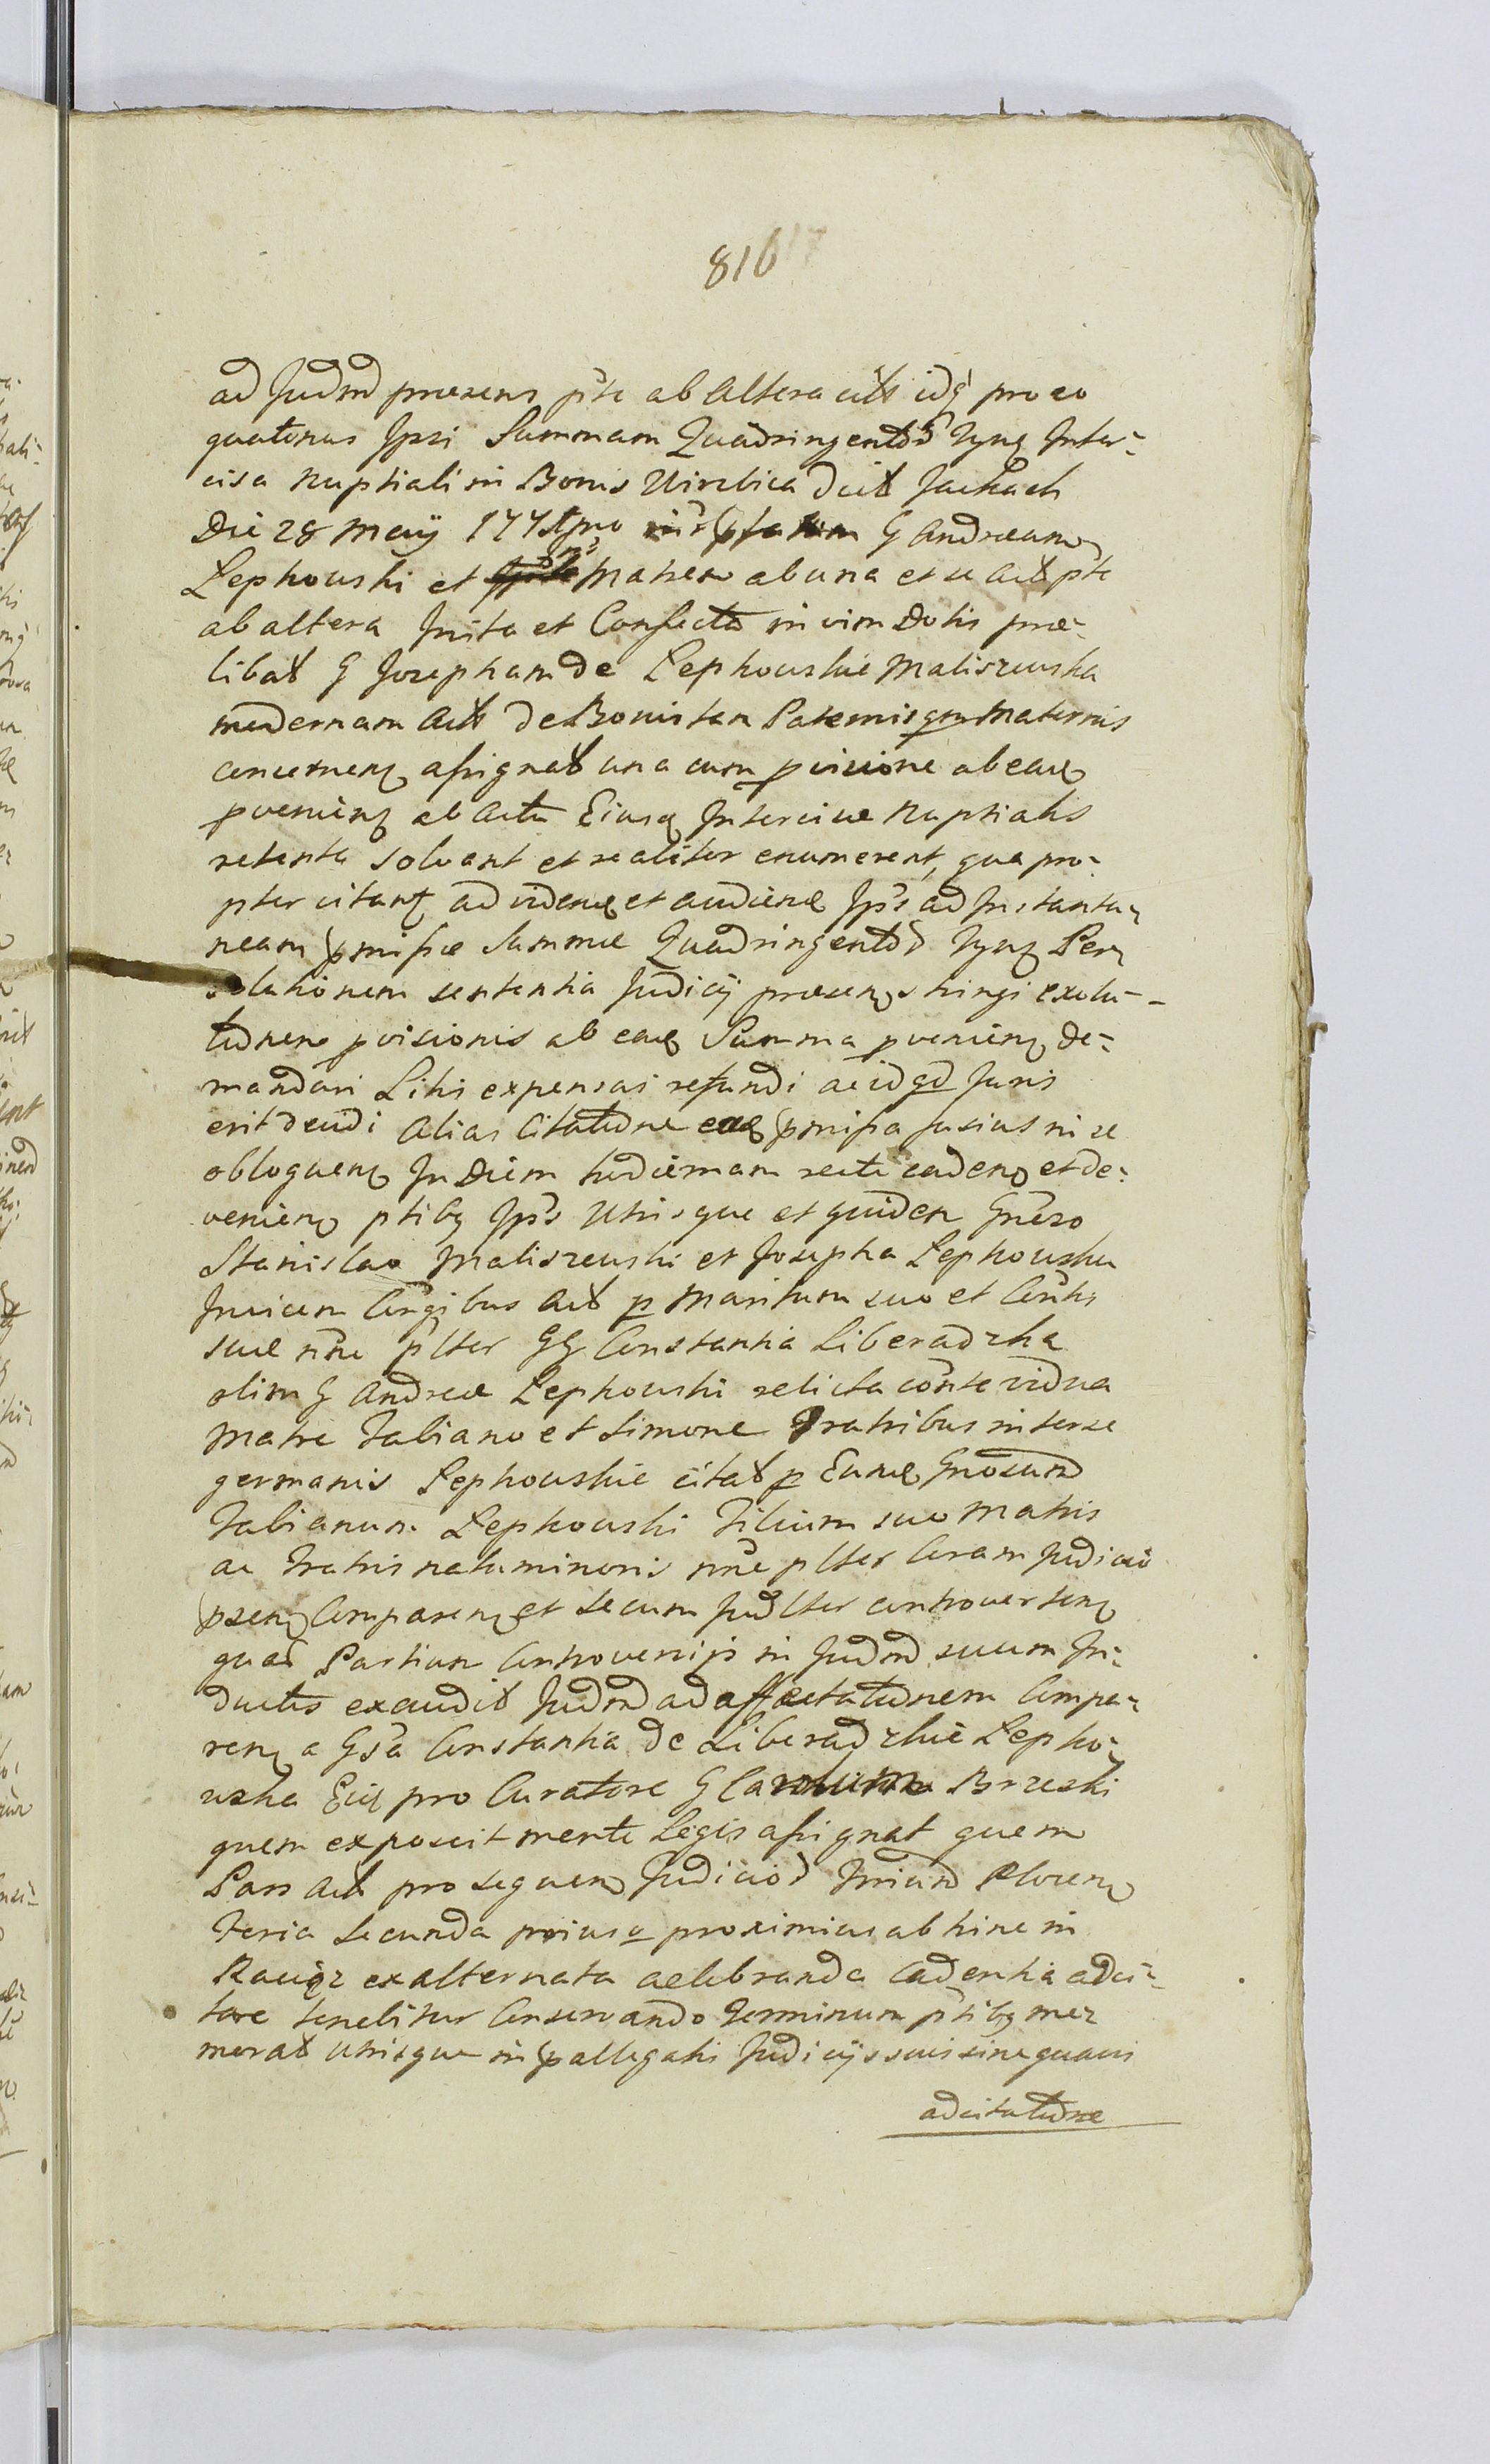 816
ad Judm praesens pte ab altera citt idq pro eo
quatenus Ipsi Summam Quadringentor Tynf Inter-
cisa nuptiali in Bonis Wirzbica dict Jackach
Die 28 Maij 177 G Andream
Lepkowski et Matrem ab una et se act pte
ab altera Inita et Confecta in vim Dotis prae-
libat G Josepham de Lepkowskie Maliszewska
modernam act de Bonis tam Paternis qm Maternis
concernen assignat una cum pvisione ab eadem
pvenien ab actu Eiusd Intercisae Nuptialis
retenta solvant et realiter enumerent, qua pro-
pter citant ad viden et audien Ipss ad Instanta-
neam pmissae Summae Quadringentor Tynf Per-
solutionem sententia Judicij praesen stringi exolu-
tionem pvisionis ab ead Summa pvenien de-
mandari Litis expensas refundi ac id qd Juris
erit decidi alias Citatione ead pmissa fusius in se
obloquen In Diem hodiernam recte caden et de-
venien ptibq Ipss Utrisque et quidem Gnoso
Stanislao Maliszewski et Josepha Lepkowska
Invicem Congibus act p Maritum suo et Contis
suae nne plter GG Constantia Liberadzka
olim G Andreae Lepkowski relicta conte vidua
Matre Fabiano et Simone Fratribus inter se
germanis Lepkowskie citat p Eund Gnosum
Fabianum Lepkowski Filium suo Matris
ac Fratris natu minoris nne plter Coram Judicio
psen Comparen et secum Judlter controverten
quar Partium Controversijs in Judm suum In-
ductis exaudit Judm ad affectationem Compa-
ren a Gsa Constantia de Liberadzkie Lepko-
wska Eid pro Curatore G Brzeski
quem exposcit mente Legis assignat quem
Pars act prosequen Judicior Trium Plocen
Feria Secunda proxi proximius ab hinc in
Raciąz ex alternata celebranda cadentia adci-
tare tenebitur Conservando Terminum ptibq me-
morat Utrisque in pallegatis Judicijs suis sine quavis
adcitatione